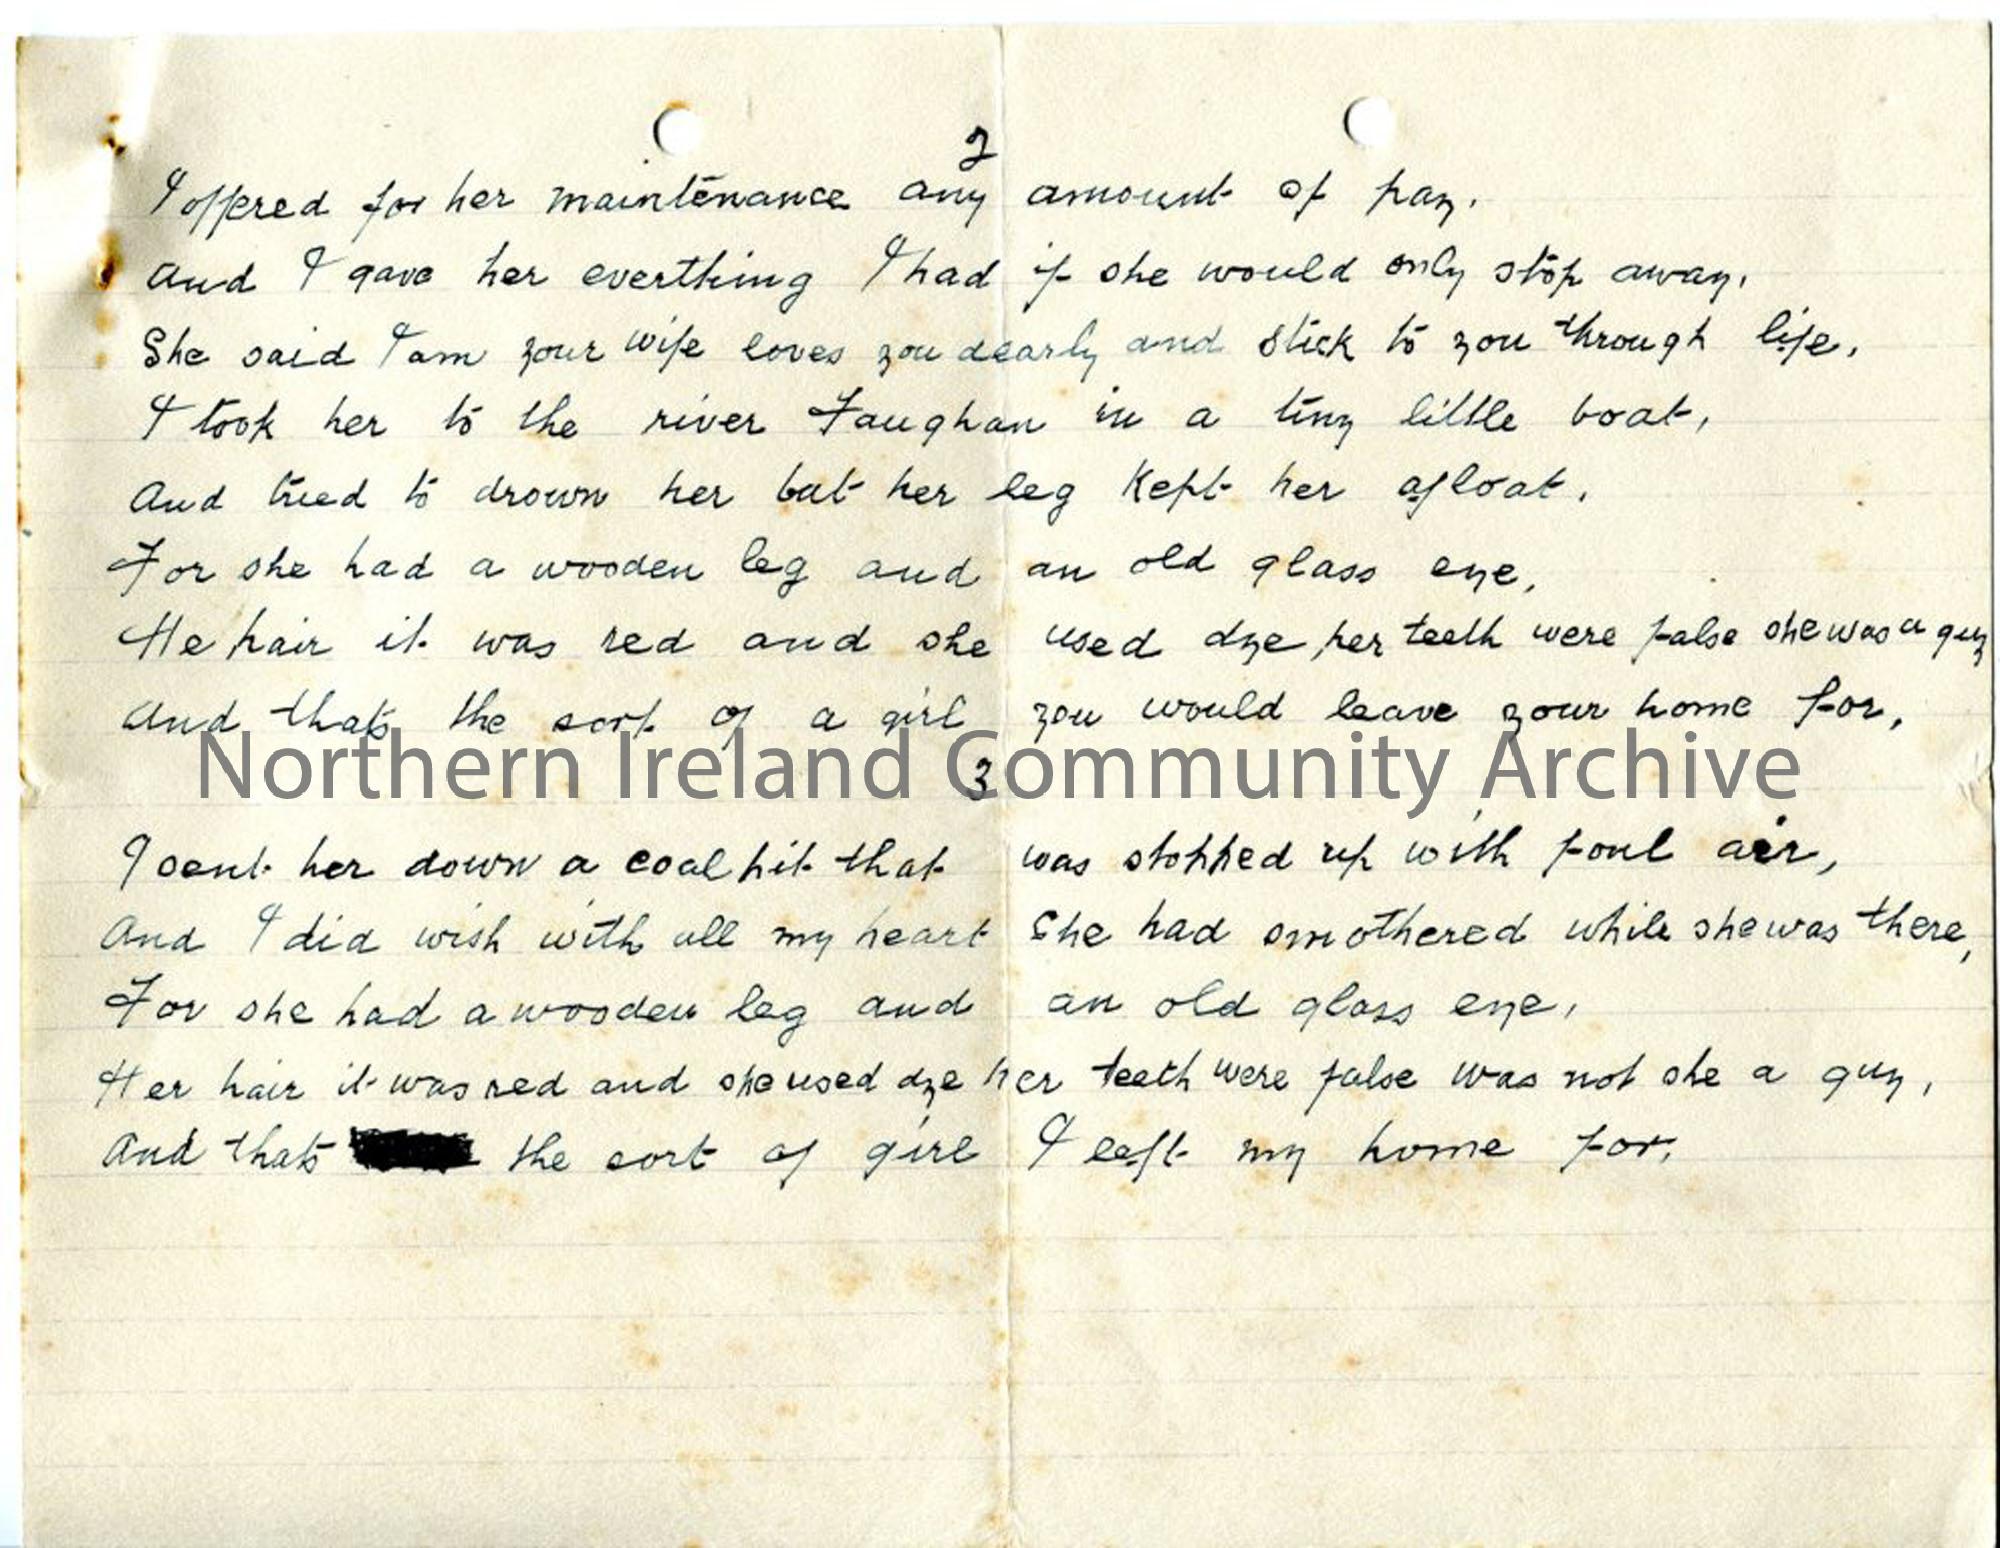 2
I offered for her maintenance any amount of pay.
and I gave her everthing I had if she would only stop away,
She said I am your wife loves you dearly and stick to you through life,
I took her to the river Faughan in a tiny little boat,
And tried to drown her but her leg kept her afloat,
For she had a wooden leg and an old glass eye,
He hair it was red and she used dye, her teeth were false she was a guy
And thats the sort of a girl you would leave your home for,
Northern Ireland Community Archive
3
I sent her down a coal pit that was stopped up with foul air,
And I did wish with all my heart She had smothered while she was there,
For she had a wooden leg and an old glass eye,
Her hair it was red and she used dye her teeth were false was not she a guy,
And thats the sort of girl I left my home for,